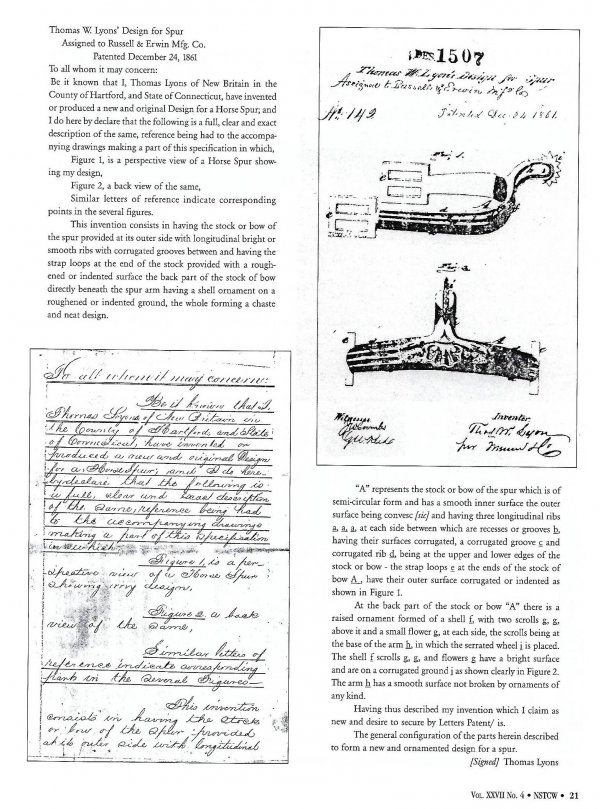 Thomas W. Lyons' Design for Spur
Assigned to Russell & Erwin Mfg. Co.
Patented December 24, 1861
To all whom it may concern:
Be it known that I, Thomas Lyons of New Britain in the
County of Hartford, and State of Connecticut, have invented
or produced a new and original Design for a Horse Spur; and
I do here by declare that the following is a full, clear and exact
description of the same, reference being had to the accompa-
nying drawings making a part of this specification in which,
Figure 1, is a perspective view of a Horse Spur show-
ing my design,
Figure 2, a back view of the same,
Similar letters of reference indicate corresponding
points in the several figures.
This invention consists in having the stock or bow of
the spur provided at its outer side with longitudinal bright or
smooth ribs with corrugated grooves between and having the
strap loops at the end of the stock provided with a rough-
ened or indented surface the back part of the stock of bow
directly beneath the spur arm having a shell ornament on a
roughened or indented ground, the whole forming a chaste
and neat design.
To all whom it may concern:
Be it known that I,
Thomas Lyons of New Britain in
the County of Hartford, and State
of Connecticut, have invented or
produced a new and original Design
for a Horse Spur; and I do here-
by declare that the following is
a full, clear and exact description
of the same, reference being had
to the accompanying drawings
making a part of this specification
in which
Figure 1, is a per-
spective view of a Horse Spur
showing my design,
Figure 2 a back
view of the same,
Similar letters of
reference indicate corresponding
parts in the several Figures
This invention
consists in having the stock
or bow of the spur provided
at its outer side with longitudinal
DES. 1507
Thomas W. Lyon's Design for Spur
Assigned to Russell & Erwin Mfg Co
No. 142
Patented Dec. 24 1861.
Fig. 1.
Fig. 2
Witnesses
Inventor
Thos W. Lyon
per Munn & Co
"A" represents the stock or bow of the spur which is of
semi-circular form and has a smooth inner surface the outer
surface being convesc [sic] and having three longitudinal ribs
a, a, a, at each side between which are recesses or grooves b,
having their surfaces corrugated, a corrugated groove c and
corrugated rib d, being at the upper and lower edges of the
stock or bow - the strap loops e at the ends of the stock of
bow A , have their outer surface corrugated or indented as
shown in Figure 1.
At the back part of the stock or bow "A" there is a
raised ornament formed of a shell f, with two scrolls g, g,
above it and a small flower g, at each side, the scrolls being at
the base of the arm h, in which the serrated wheel i is placed.
The shell f scrolls g, g, and flowers g have a bright surface
and are on a corrugated ground j as shown clearly in Figure 2.
The arm h has a smooth surface not broken by ornaments of
any kind.
Having thus described my invention which I claim as
new and desire to secure by Letters Patent/ is.
The general configuration of the parts herein described
to form a new and ornamented design for a spur.
[Signed] Thomas Lyons
VOL. XXVII NO. 4 • NSTCW • 21